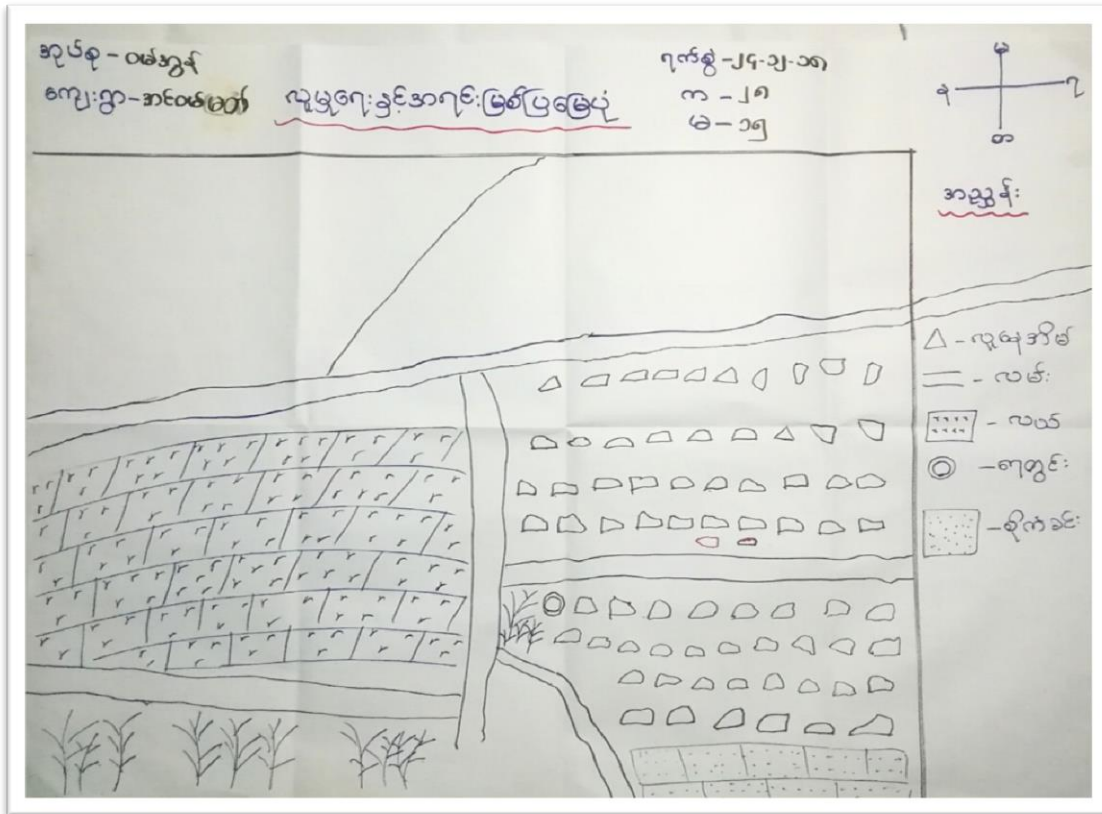 အုပ်စု - ဝမ်အွန်
ကျေးရွာ - အင်ဝမ်မတ်
လူမှုရေးနှင့်အရင်းမြစ်ပြမြေပုံ
ရက်စွဲ - ၂၄-၁၂-၁၈
က - ၂၈
မ - ၁၅
မ
န
ရ
တ
အညွှန်း
△ - လူနေအိမ်
= - လမ်း
- လယ်
◎ - ရေတွင်း
- စိုက်ခင်း